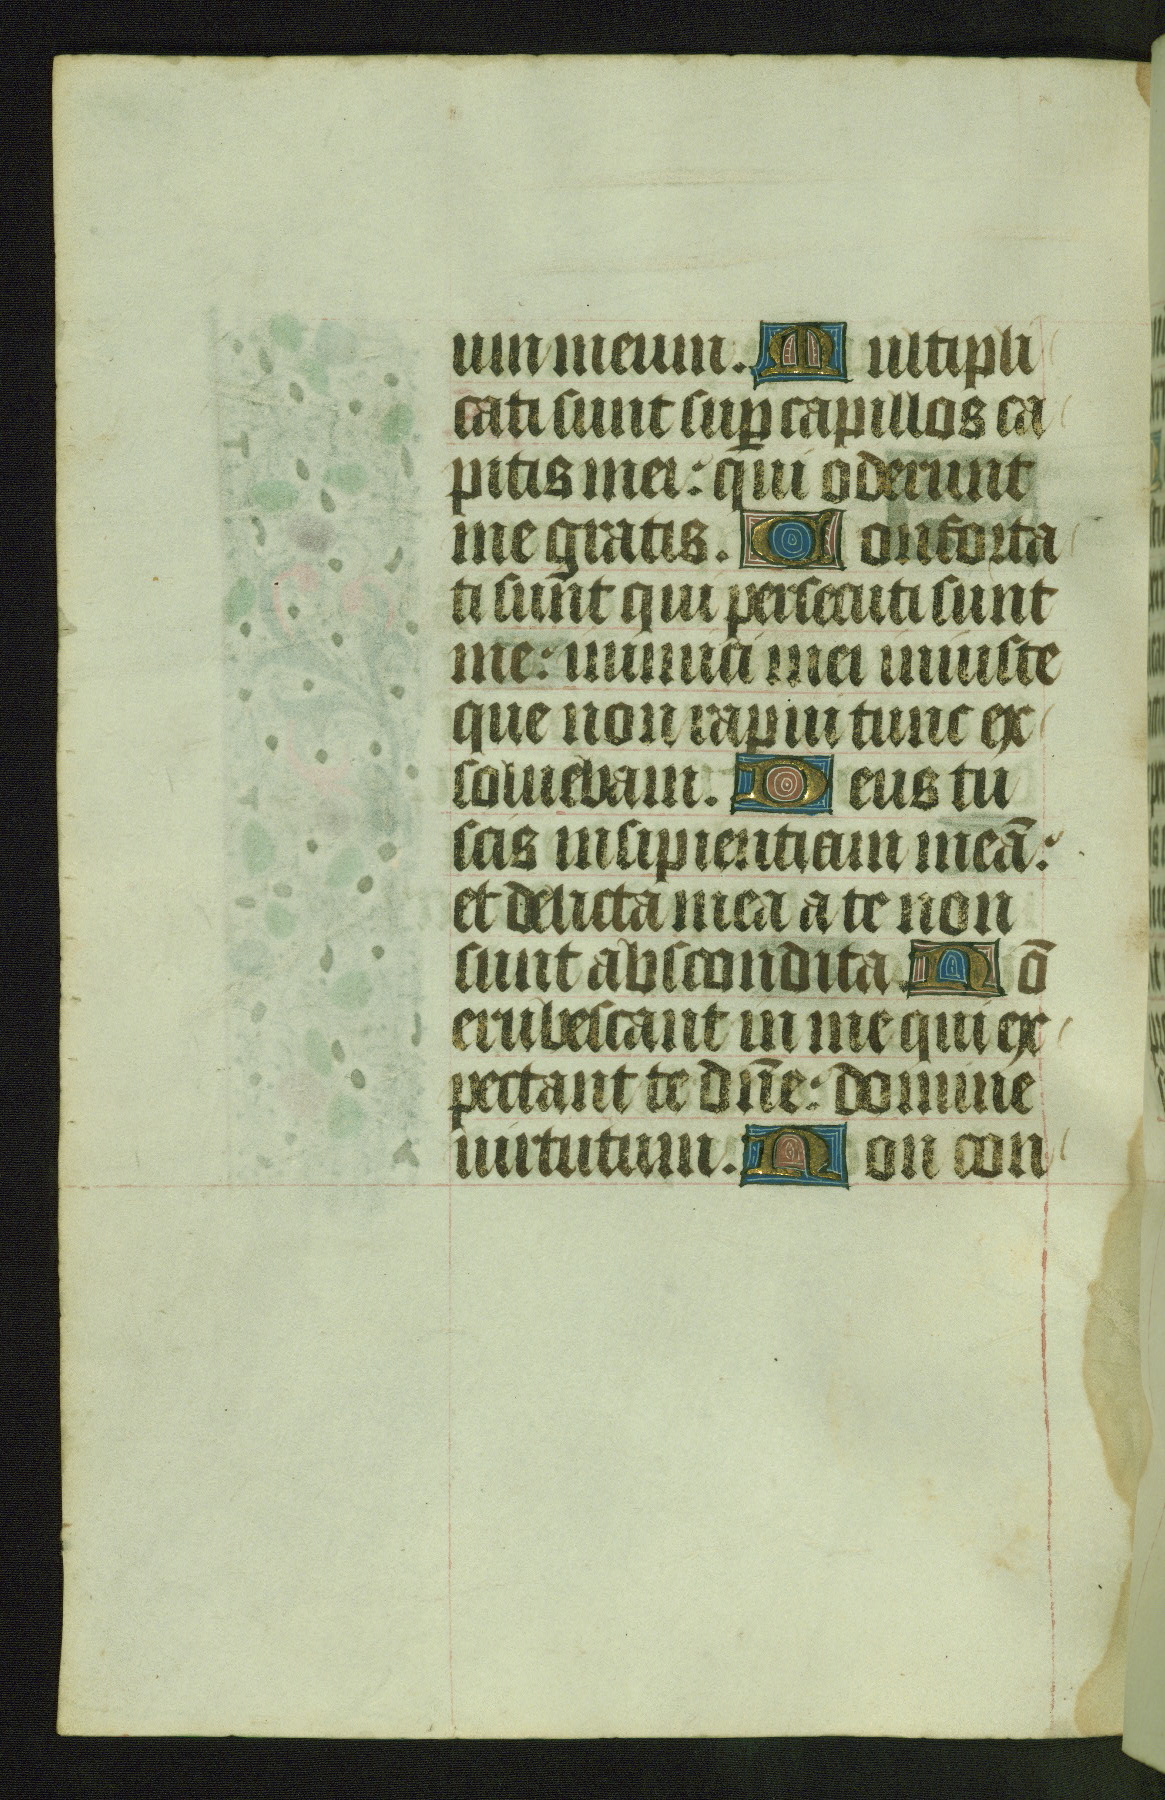 um meum. Multipli
cati sunt suꝑ capillos ca
pitis mei: qui oderunt
me gratis. Conforta
ti sunt qui persecuti sunt
me: inimici mei iniuste
que non rapui tunc ex
soluebam. Deus tu
scis insipientiam meā:
et delicta mea a te non
sunt abscondita. Nō
erubescant in me qui ex
pectant te dn̄e: domine
uirtutum. Non con